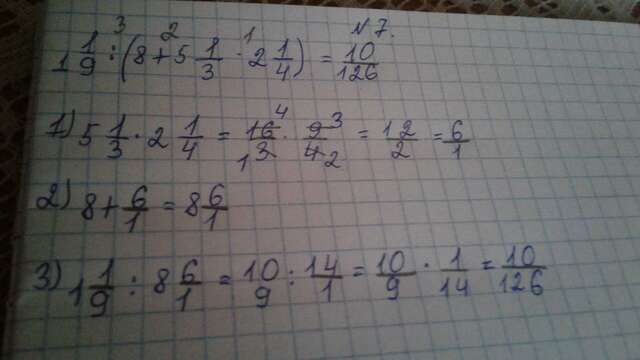 N 7.
3 2 1
1 1/9 : (8 + 5 1/3 · 2 1/4) = 10/126
1) 5 1/3 · 2 1/4 = 16 4/1 3 · 9 3/4 2 = 12/2 = 6/1
2) 8 + 6/1 = 8 6/1
3) 1 1/9 : 8 6/1 = 10/9 : 14/1 = 10/9 · 1/14 = 10/126